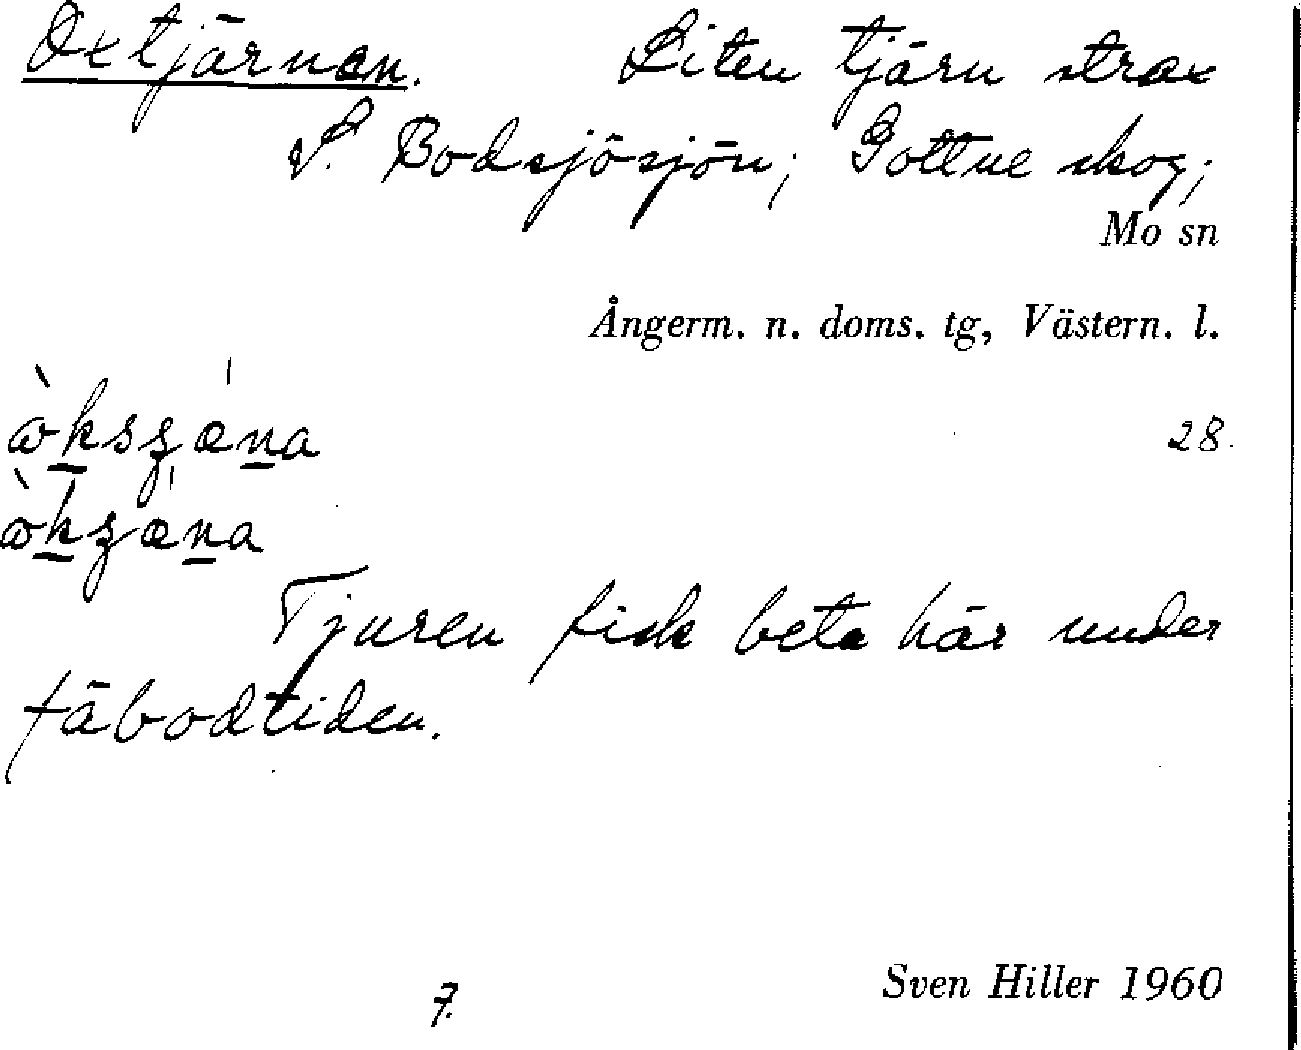 Oxtjärnen. Liten tjärn strax
S. Bodsjösjön; Gottne skog;
Mo sn
Ångerm. n. doms. tg, Västern. l.
28.
Tjuren fick beta här under
fäbodtiden.
Sven Hiller 1960
7.